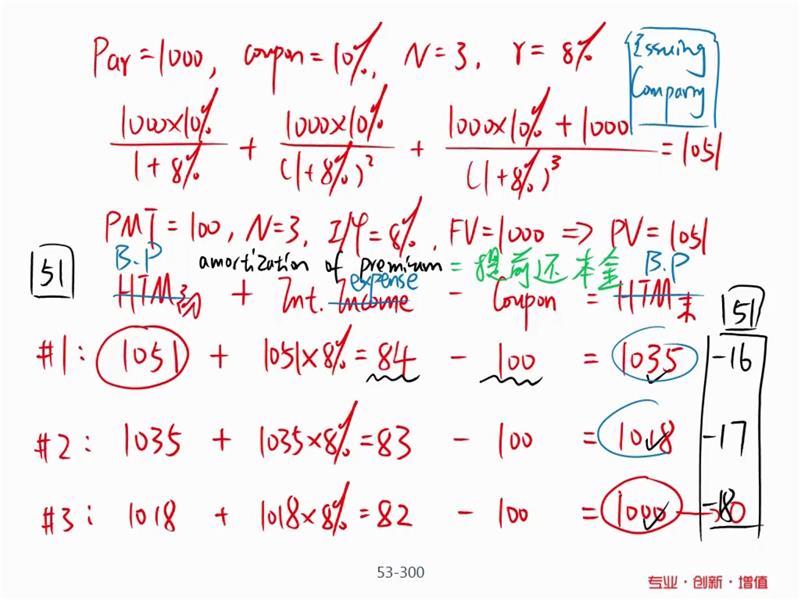 Par=1000, coupon=10%, N=3, r=8%
Issuing
Company
1000×10%/1+8% + 1000×10%/(1+8%)² + 1000×10%+1000/(1+8%)³ =1051
PMT=100, N=3, I/Y=8%, FV=1000 => PV=1051
51
B.P amortization of premium = 提前还本金 B.P
expense
HTM初 + Int. Income - Coupon = HTM末
51
#1: 1051 + 1051×8%=84 - 100 = 1035 -16
#2: 1035 + 1035×8%=83 - 100 = 1018 -17
#3: 1018 + 1018×8%=82 - 100 = 1000 -18
53-300
专业·创新·增值